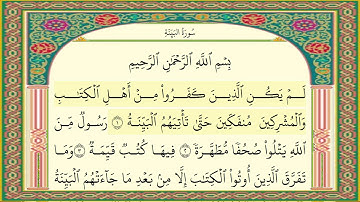 سُورَةُ البَيِّنَةِ
بِسْمِ اللَّهِ الرَّحْمَٰنِ الرَّحِيمِ
لَمْ يَكُنِ الَّذِينَ كَفَرُوا۟ مِنْ أَهْلِ الْكِتَٰبِ
وَالْمُشْرِكِينَ مُنفَكِّينَ حَتَّىٰ تَأْتِيَهُمُ الْبَيِّنَةُ ١ رَسُولٌ مِّنَ
اللَّهِ يَتْلُوا۟ صُحُفًا مُّطَهَّرَةً ٢ فِيهَا كُتُبٌ قَيِّمَةٌ ٣ وَمَا
تَفَرَّقَ الَّذِينَ أُوتُوا۟ الْكِتَٰبَ إِلَّا مِنۢ بَعْدِ مَا جَآءَتْهُمُ الْبَيِّنَةُ